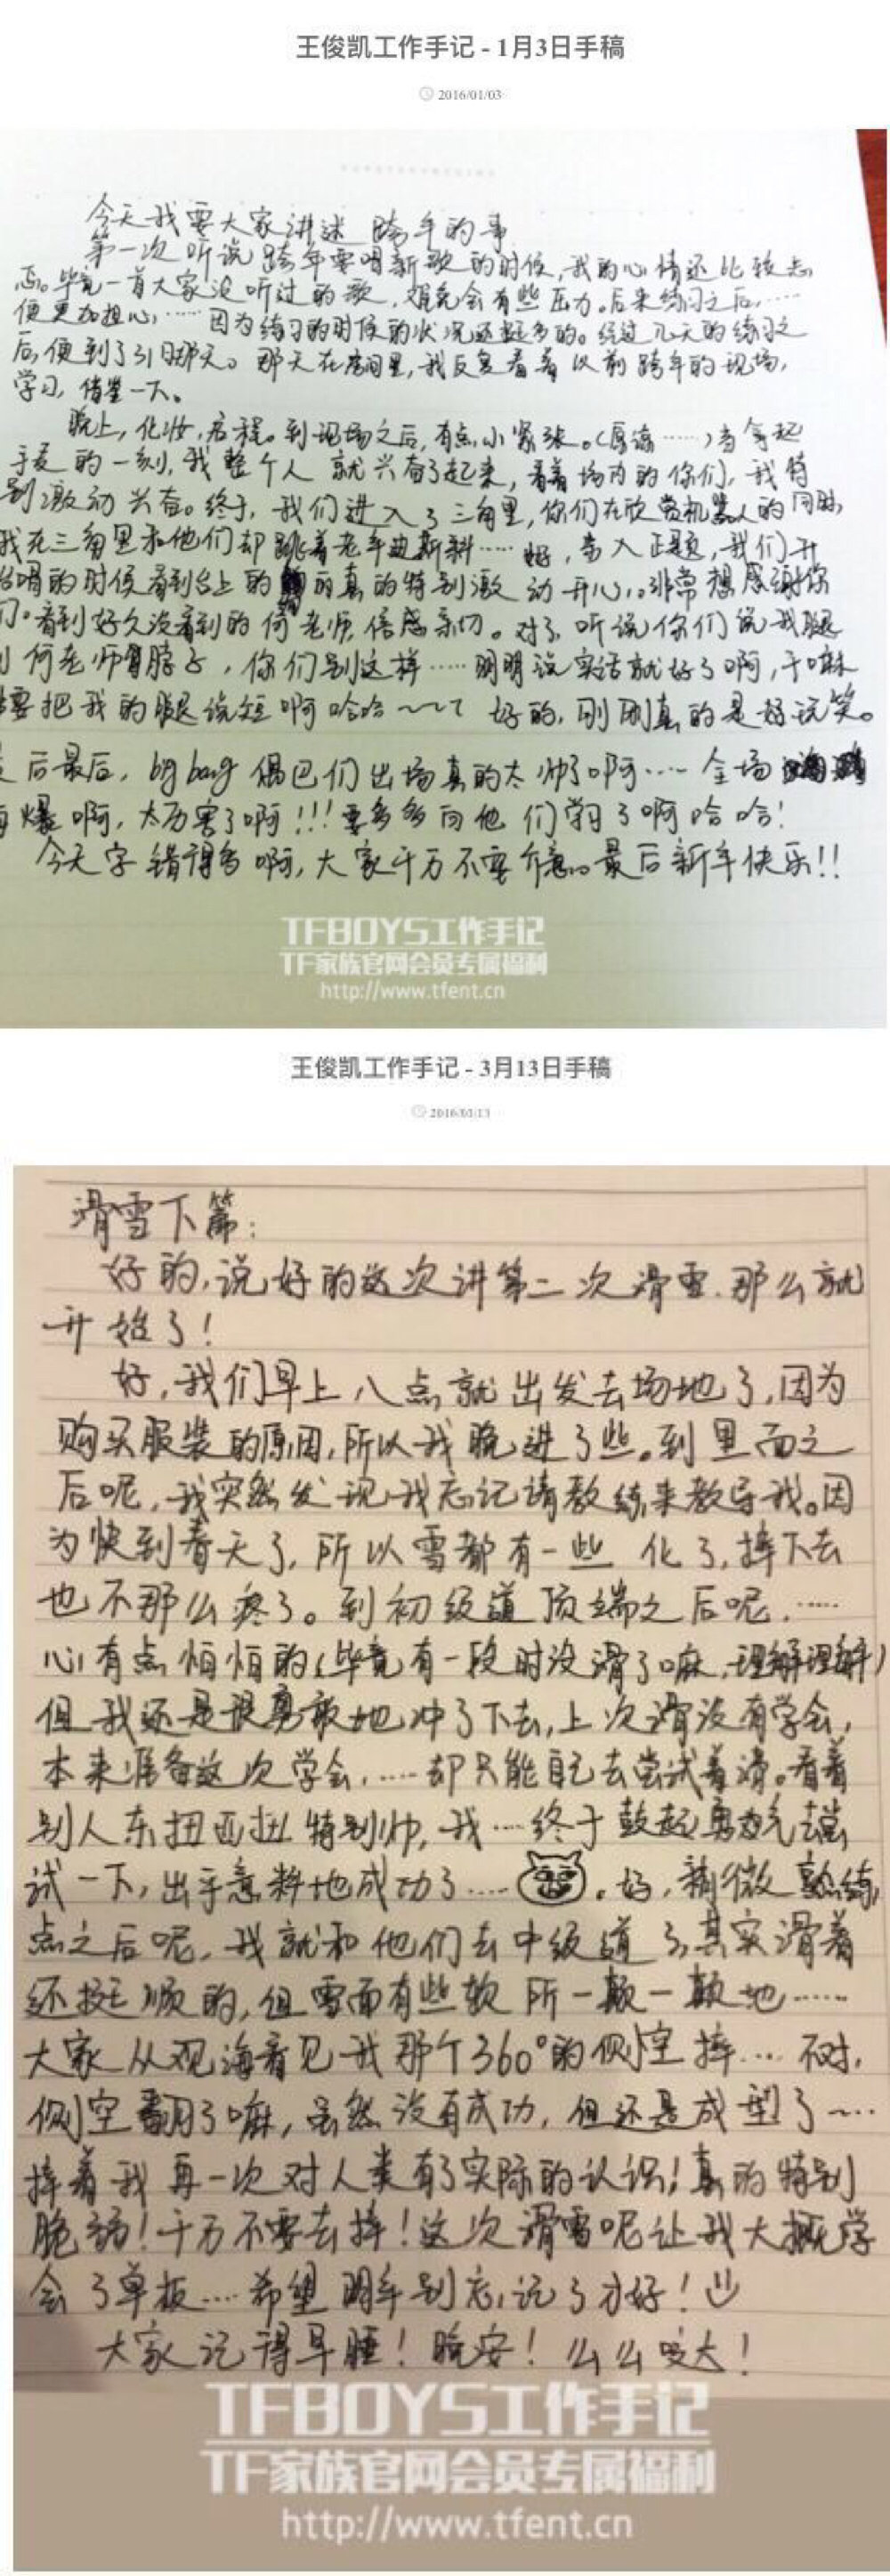 王俊凯工作手记 - 1月3日手稿
2016/01/03
今天我要大家讲述 跨年的事
第一次听说跨年要唱新歌的时候,我的心情还比较忐
忑。毕竟一首大家没听过的歌,难免会有些压力。后来练习之后,……
便更加担心,……因为练习的时候的状况还挺多的。经过几天的练习之
后,便到了31日那天。那天在房间里,我反复看着以前跨年的现场,
学习,借鉴一下。
晚上,化妆,启程。到现场之后,有点小紧张。(原谅……)当拿起
手麦的一刻,我整个人就兴奋了起来,看着场内的你们,我特
别激动兴奋。终于,我们进入了三角里,你们在欣赏机器人的同时,
我在三角里和他们却跳着老年迪斯科……好,步入正题,我们开
始唱的时候看到台上的 真的特别激动开心,。非常想感谢你
们。看到好久没看到的何老师,倍感亲切。对了,听说你们说我腿
到何老师胃脖子,你们别这样……明明说实话就好了啊,干嘛
要把我的腿说短啊哈哈~~~ 好的,刚刚真的是好玩笑。
后最后,big bang 偶巴们出场真的太帅了啊……全场
爆啊,太厉害了啊!!!要多多向他们学习了啊哈哈!
今天字错得多啊,大家千万不要介意。最后新年快乐!!
TFBOYS工作手记
TF家族官网会员专属福利
http://www.tfent.cn
王俊凯工作手记 - 3月13日手稿
滑雪下篇:
好的,说好的这次讲第二次滑雪.那么就
开始了!
好,我们早上八点就出发去场地了,因为
购买服装的原因,所以我晚进了些。到里面之
后呢,我突然发现我忘记请教练来教导我。因
为快到春天了,所以雪都有一些化了,摔下去
也不那么疼了。到初级道顶端之后呢,……
心有点怕怕的(毕竟有一段时没滑了嘛,理解理解)
但我还是很勇敢地冲了下去,上次滑没有学会,
本来准备这次学会,……却只能自己去尝试着滑。看着
别人东扭西扭特别帅,我……终于鼓起勇气去尝
试一下,出乎意料地成功了……。好,稍微熟练
点之后呢,我就和他们去中级道了,其实滑着
还挺顺的,但雪面有些软所一颠一颠地……
大家从观海看见我那个360°的侧空摔…. 不对,
侧空翻了嘛,虽然没有成功,但还是成型了……
摔着我再一次对人类有了实际的认识!真的特别
脆弱!千万不要去摔!这次滑雪呢让我大概学
会了单板….希望明年别忘记了才好!
大家记得早睡!晚安!么么哒大!
TFBOYS工作手记
TF家族官网会员专属福利
http://www.tfent.cn